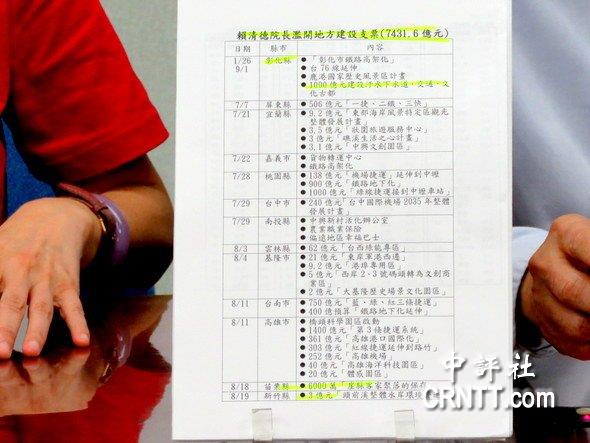 賴清德院長濫開地方建設支票(7431.6 億元)
日期 縣市 內容
1/26 彰化縣 ●「彰化市鐵路高架化」
9/1 ●台 76 線延伸
●鹿港國家歷史風景區計畫
●1000 億元建設汙水下水道、交通、文
化古都
7/7 屏東縣 ●506 億元「一捷、二鐵、三快」
7/21 宜蘭縣 ●9.2 億元「東部海岸風景特定區觀光
整體發展計畫」
●3.5 億元「壯圍旅遊服務中心」
●3 億元「礁溪生活之心計畫」
●3.1 億元「中興文創園區」
7/22 嘉義市 ●貨物轉運中心
●鐵路高架化
7/28 桃園縣 ●138 億元「機場捷運」延伸到中壢
●900 億元「鐵路地下化」
●1000 億元「綠線捷運接到中壢車站」
7/29 台中市 ●240 億元「台中國際機場 2035 年整體
發展計畫」
7/29 南投縣 ●中興新村活化辦公室
●農業職業保險
●偏遠地區幸福巴士
8/3 雲林縣 ●62 億元「台西綠能專區」
8/4 基隆市 ●21 億元「東岸軍港西遷」
●9.2 億元「港埠專用區」
●5 億元「西岸 2、3 號碼頭轉為文創商
業區」
●2 億元「大基隆歷史場景文化園區」
8/11 台南市 ●750 億元「藍、綠、紅三條捷運」
●400 億預算「鐵路地下化延伸」
8/11 高雄市 ●橋頭科學園區啟動
●1400 億元「第 3 條捷運系統」
●361 億元「高雄港口國際化」
●303 億元「紅線捷運延伸到路竹」
●252 億元「高雄機場」
●40 億元「高雄海洋科技園區」
●20 億元「體感園區」
8/18 苗栗縣 ●6000 萬「崖脉客家聚落的保存
8/19 新竹縣 ●3 億元「頭前溪整體水岸環境
中評社
CRNTT.com